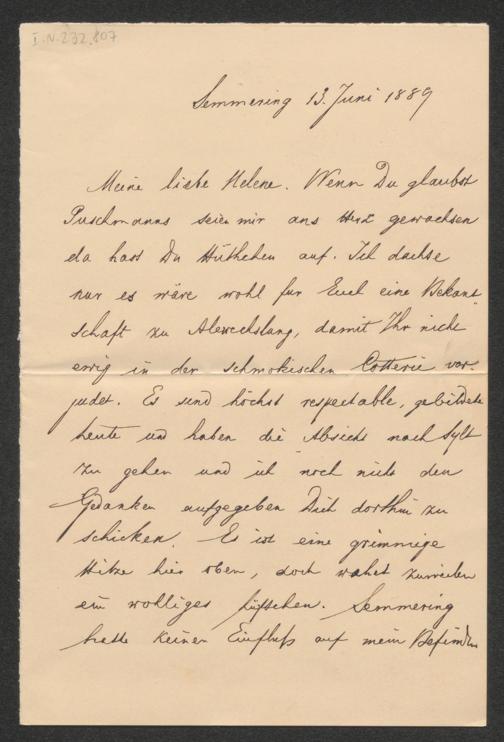 I.N. 232.807
Semmering 13. Juni 1889
Meine liebe Helene. Wenn Du glaubst
Puschmanns seien mir ans Herz gewachsen
da hast Du Hüthchen auf. Ich dachte
nur es wäre wohl fur Euch eine Bekant
schaft zu Abwechslung, damit Ihr nicht
ewig in der schmokischen Cotterie ver-
judet. Es sind höchst respectable, gebildete
Leute und haben die Absicht nach Sylt
zu gehen und ich noch nicht den
Gedanken aufgegeben Dich dorthin zu
schicken. Es ist eine grimmige
Hitze hier oben, doch wehet zuweilen
ein wohliges Lüftchen. Semmering
hatte keinen Einfluß auf mein Befinden